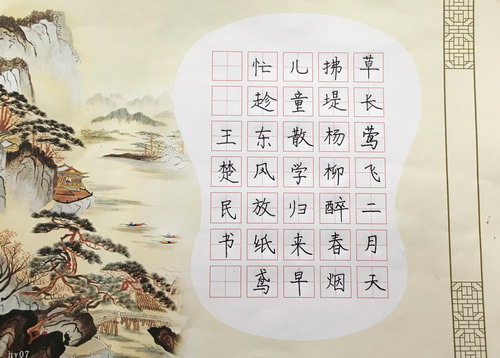 草长莺飞二月天
拂堤杨柳醉春烟
儿童散学归来早
忙趁东风放纸鸢
王楚民书
hy07